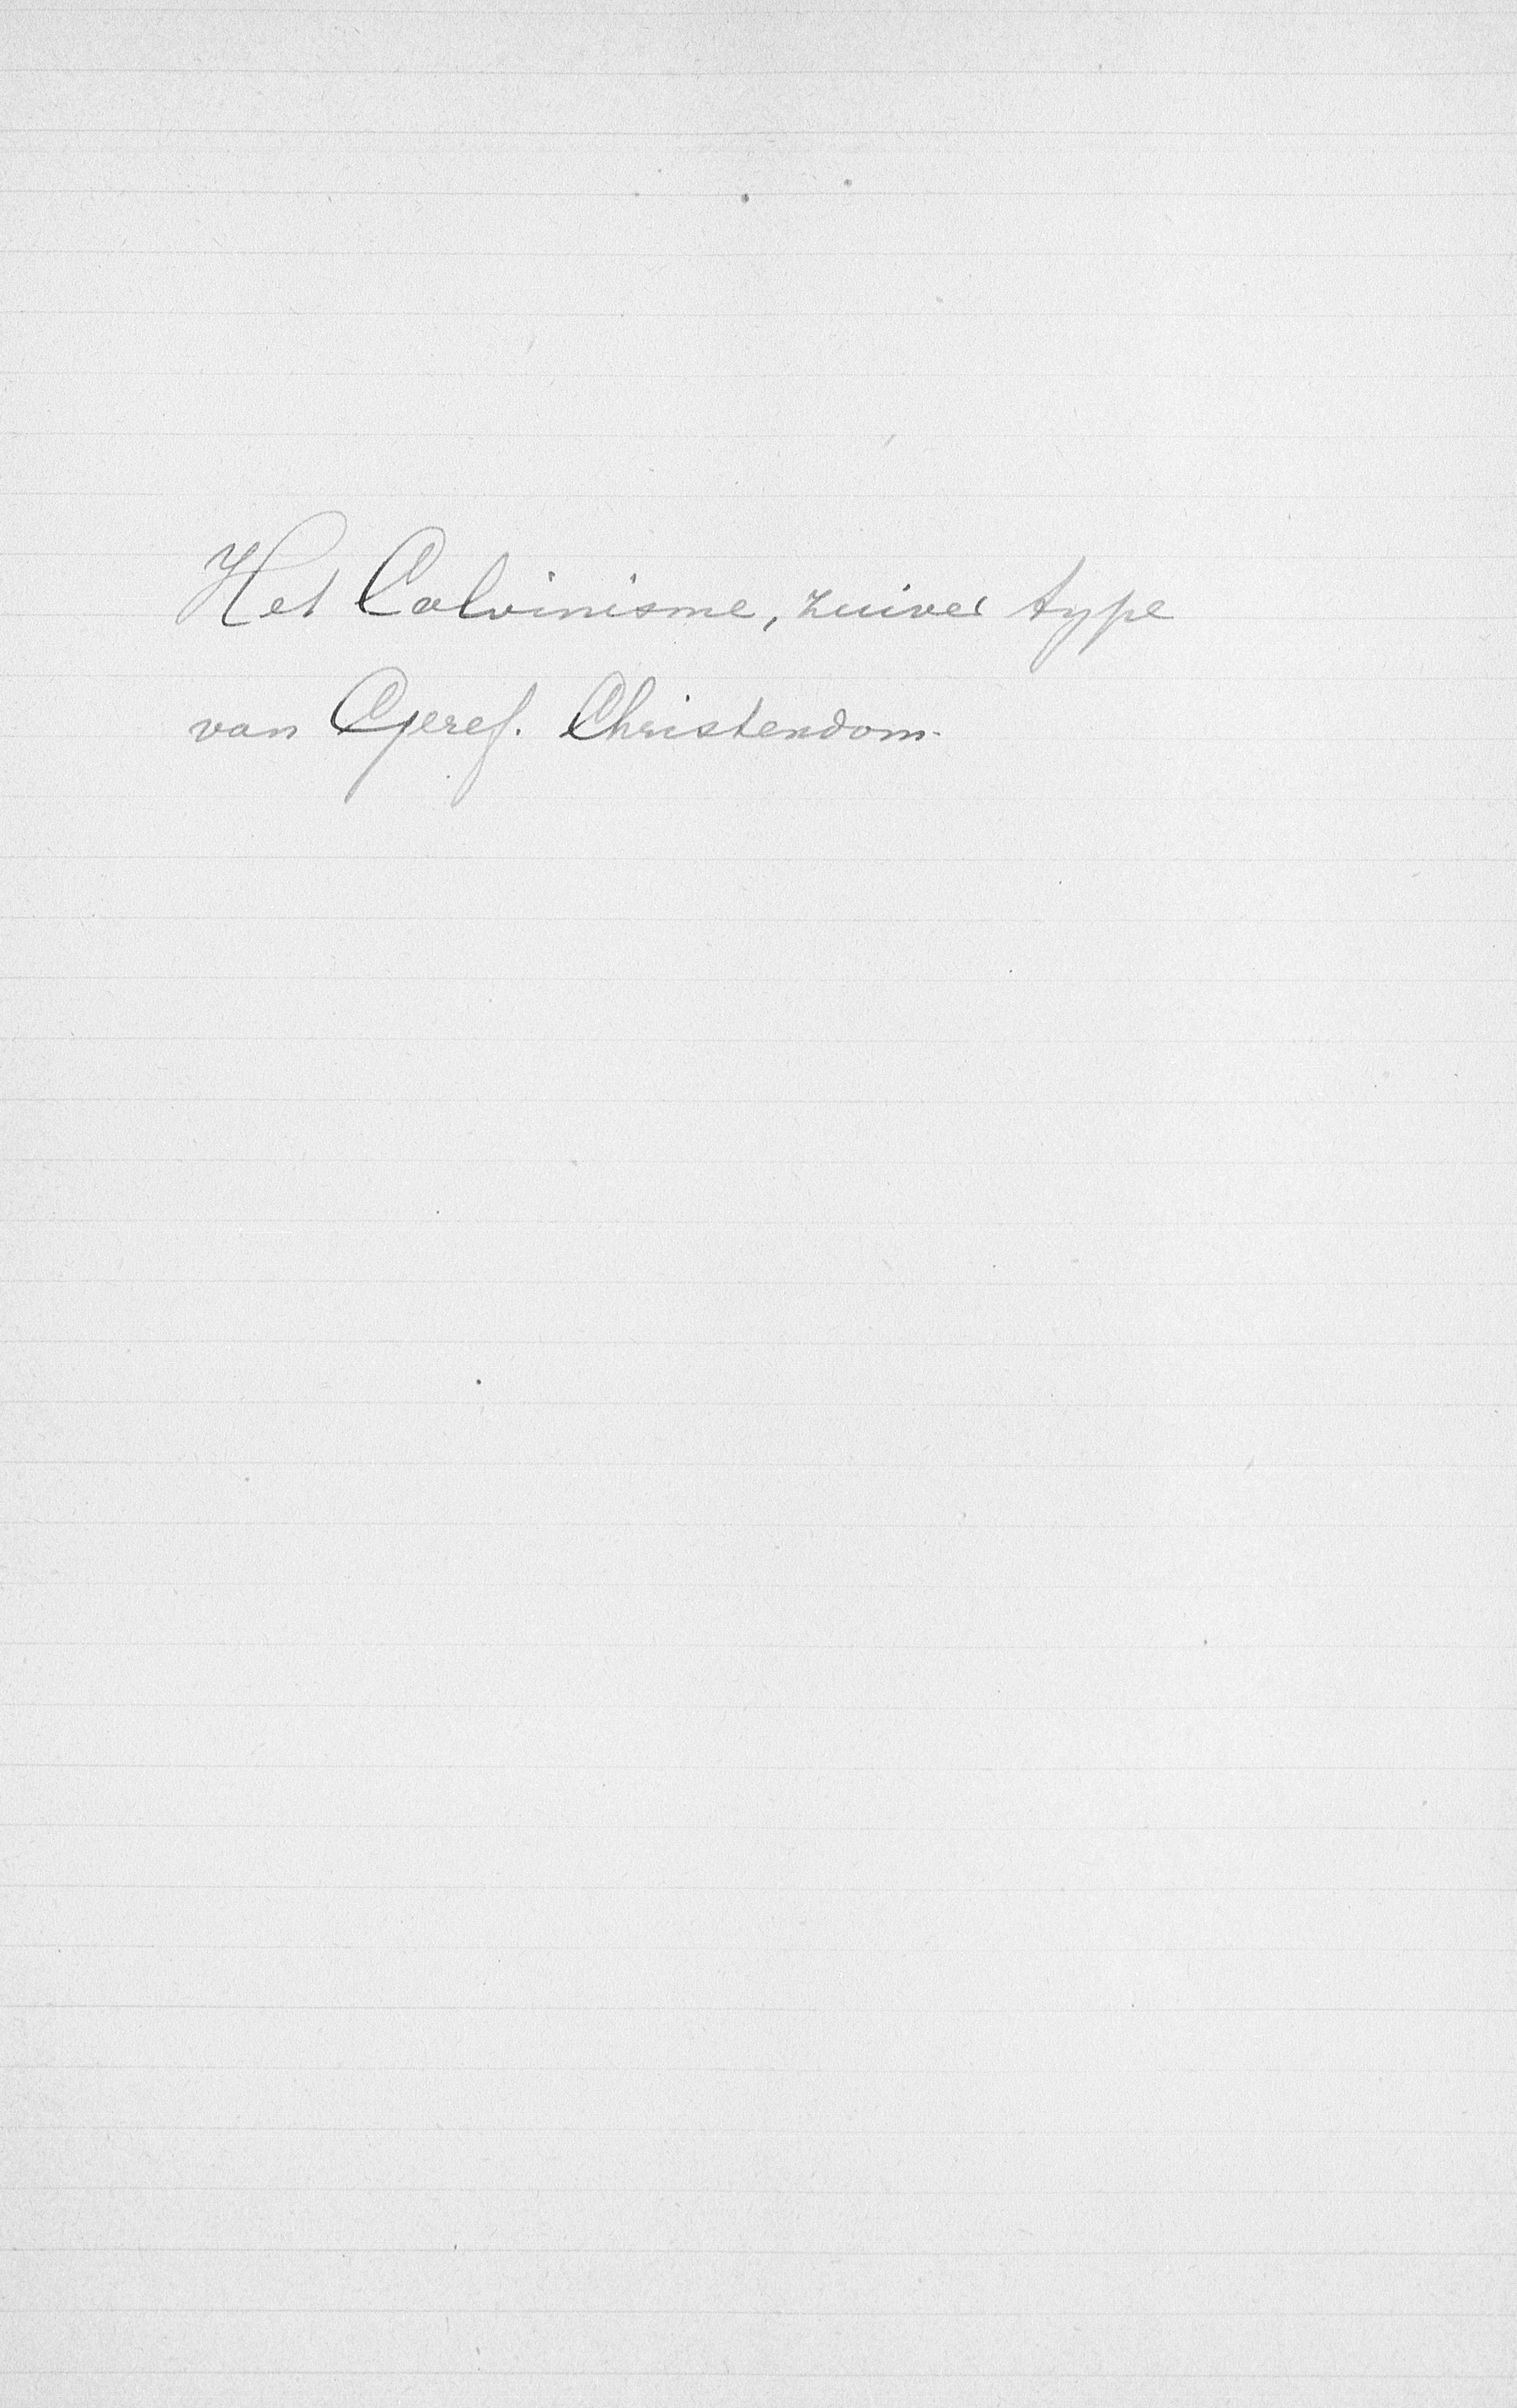 Het Calvinisme, zuiver type
van Geref. Christendom.